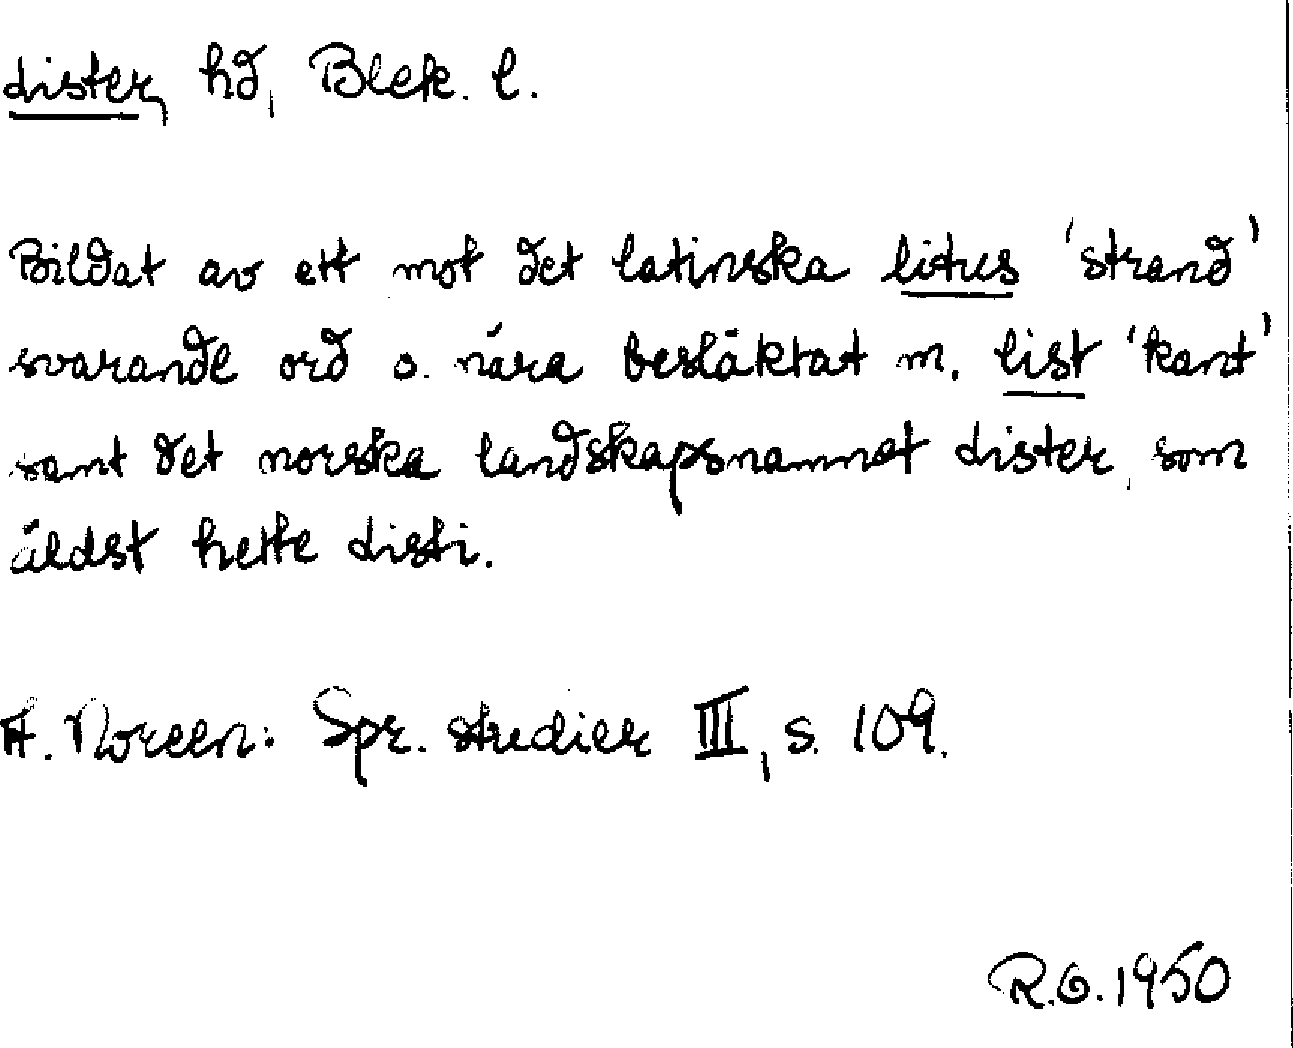 Lister, hd, Blek. l.
Bildat av ett mot det latinska litus 'strand'
svarande ord o. nära besläktat m. list 'kant'
samt det norska landskapsnamnet Lister, som
äldst hette Listi.
A. Noreen: Spr. studier III, s. 109.
R.G. 1950